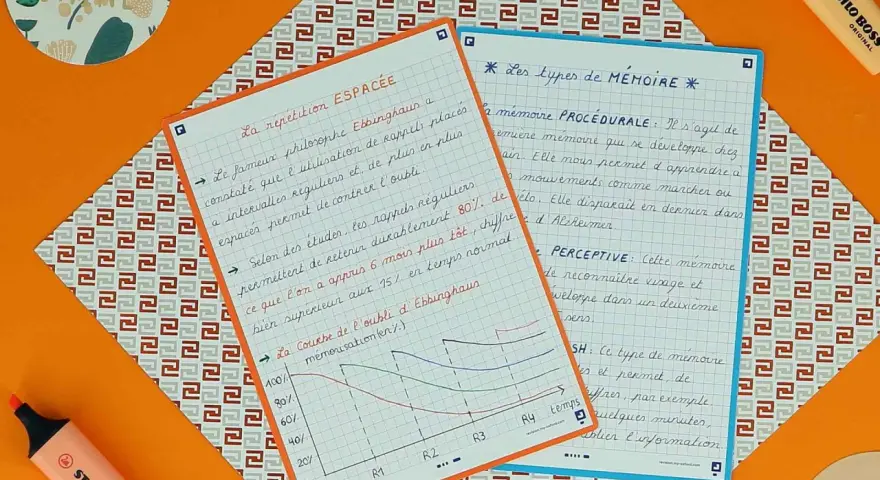 La répétition ESPACÉE
→ Le fameux philosophe Ebbinghaus a
constaté que l'utilisation de rappels placés
à intervalles réguliers et, de plus en plus
espacés permet de contrer l'oubli.
→ Selon des études, les rappels réguliers
permettent de retenir durablement 80% de
ce que l'on a appris 6 mois plus tôt, chiffre
bien supérieur aux 15% en temps normal
→ La Courbe de l'oubli d'Ebbinghaus
mémorisation (en %)
100%
80%
60%
40%
20%
R1
R2
R3
R4
temps
* Les types de MÉMOIRE *
mémoire PROCÉDURALE : Il s'agit de
mémoire qui se développe chez
Elle nous permet d'apprendre à
mouvements comme marcher ou
vélo. Elle disparaît en dernier dans
d'Alzheimer
PERCEPTIVE : Cette mémoire
de reconnaître visage et
développe dans un deuxième
sens.
SH : Ce type de mémoire
et permet, de
chiffres, par exemple
quelques minutes,
oublier l'information
BOSS
ORIGINAL